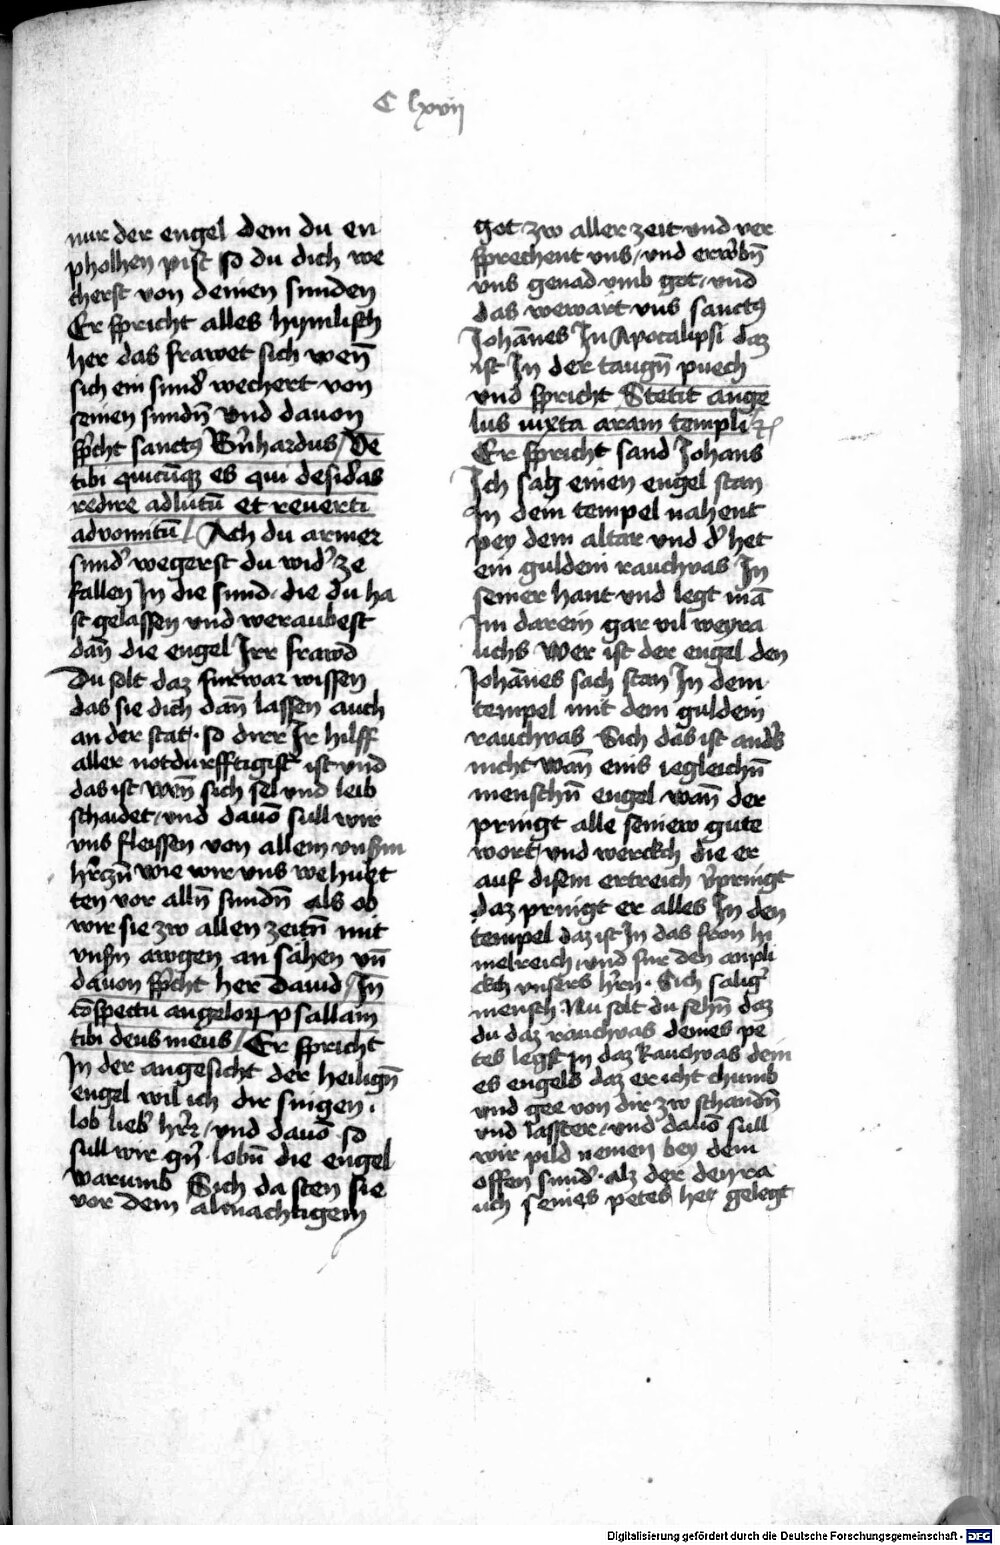 C lxvii
nur der engel dem du en
pholhen pist so du dich we
cherst von deinen sunden
Er spricht alles hymlisch
her das frawet sich wen̄
sich ein sund᷑ wechert von
seinen sundn̄ Vnd davon
sp᷑cht sanctꝰ B᷑nhardus / Ve
tibi quicūqꝫ es qui desid᷑as
redire ad lutū et reuerti
ad vomitū / Ach du armer
sund᷑ wegerst du wid᷑ ze
fallen In die sund die du ha
st gelassen vnd weraubest
dan̄ die engel Irr frawd
Du solt daz furwar wissen
das sie dich dan̄ lassen auch
an der stat so dirr Ir hilff
aller notdurfftigist ist vnd
das ist wen̄ sich sel vnd leib
schaidet vnd dauō sull wir
vns fleissen von allem vns᷑m
h᷑czn̄ wie wir vns wehuet
ten vor alln̄ sundn̄ als ob
wir sie zw allen zeitn̄ mit
vns᷑n awgen an sahen vn̄
davon sp᷑cht her Dauid / In
cōspectu angeloꝝ psallam
tibi deus meus / Er spricht
In der angesicht der heilign̄
engel wil ich dir singen
lob lieb᷑ h᷑rr / vnd dauō so
sull wir g᷑n lobn̄ die engel
warumb Sich da sten sie
vor dem almachtigem
got zw aller zeit vnd ver
sprechent vns / vnd erw᷑bn̄
vns genad vmb got / vnd
das wewart vns sanctꝰ
Johānes In Apocalipsi daz
ist In der taugn̄ puech
vnd spricht Stetit ange
lus iuxta aram templi ꝛc
Er spricht sand Johans
Ich sach einen engel stan
In dem tempel nahent
pey dem altar vnd d᷑ het
ein guldein rauchvas In
seiner hant vnd legt mā
Im darein gar vil weyra
uchs Wer ist der engel den
Johānes sach stan In dem
tempel mit dem guldein
rauchvas Sich das ist and᷑s
nicht wan̄ eins iegleichn̄
menschn̄ engel wan̄ der
pringt alle seinew gute
wort vnd werckch die er
auf disem ertreich v᷑pringt
daz pringt er alles In den
tempel daz ist In das fron hi
melreich vnd fur den anpli
ckch vnsers h᷑rn Sich salig᷑
mensch Nu solt du sehn̄ daz
du daz rauchvas deines pe
tes legst In daz Rauchvas dein
es engels daz er icht chumb
vnd gee von dir zw schandn̄
vnd laster vnd dauō sull
wir pild nemen bey dem
offen sund᷑ alz der den ra
uch seines petes het gelegt